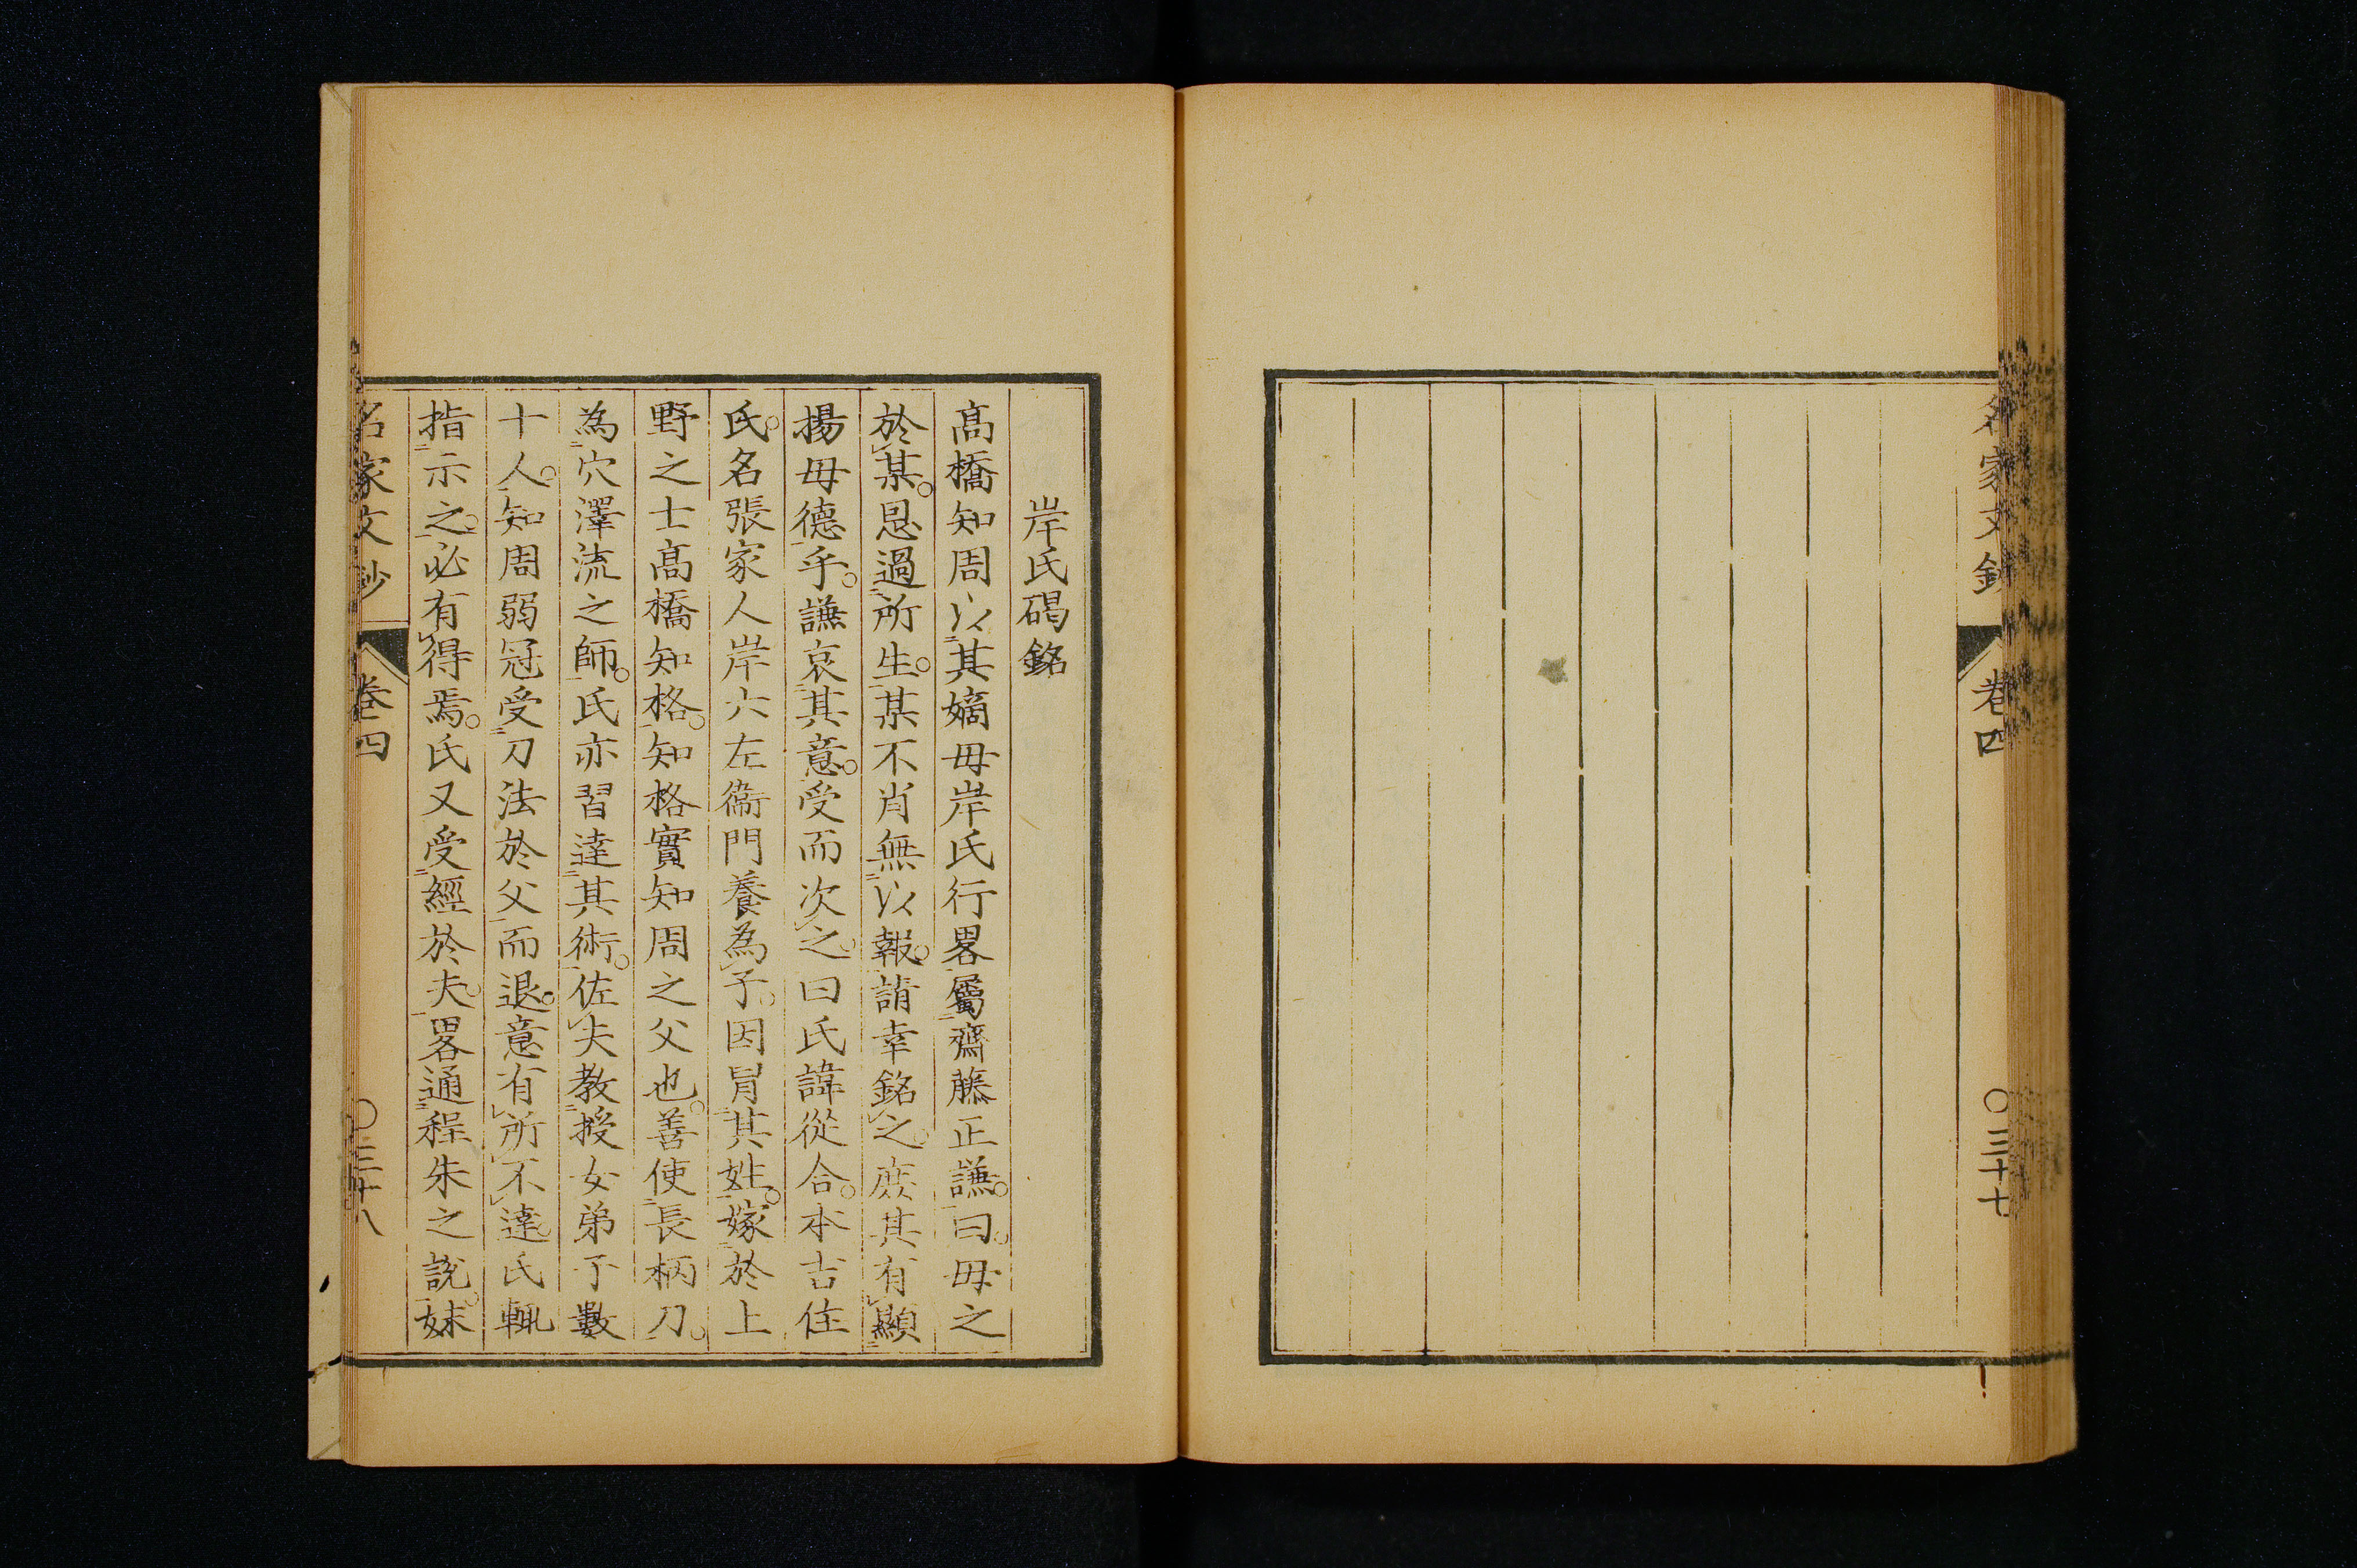 名家文鈔
卷四
〇三十七
岸氏碣銘
髙橋知周以其嫡毋岸氏行畧屬齋藤正謙。曰。毋之
於某。恩過所生。某不肖無以報。請幸銘之。庶其有顯
揚毋德乎。謙哀其意。受而次之。曰氏諱從合。本吉住
氏。名張家人岸六左衞門養為子。因冐其姓。嫁於上
野之士髙橋知格。知格實知周之父也。善使長柄刀。
為穴澤流之師。氏亦習達其術。佐夫教授女弟子數
十人。知周弱冠受刀法於父而退。意有所不達。氏輒
指示之。必有得焉。氏又受經於夫。畧通程朱之說。妹
名家文鈔
卷四
〇三十八